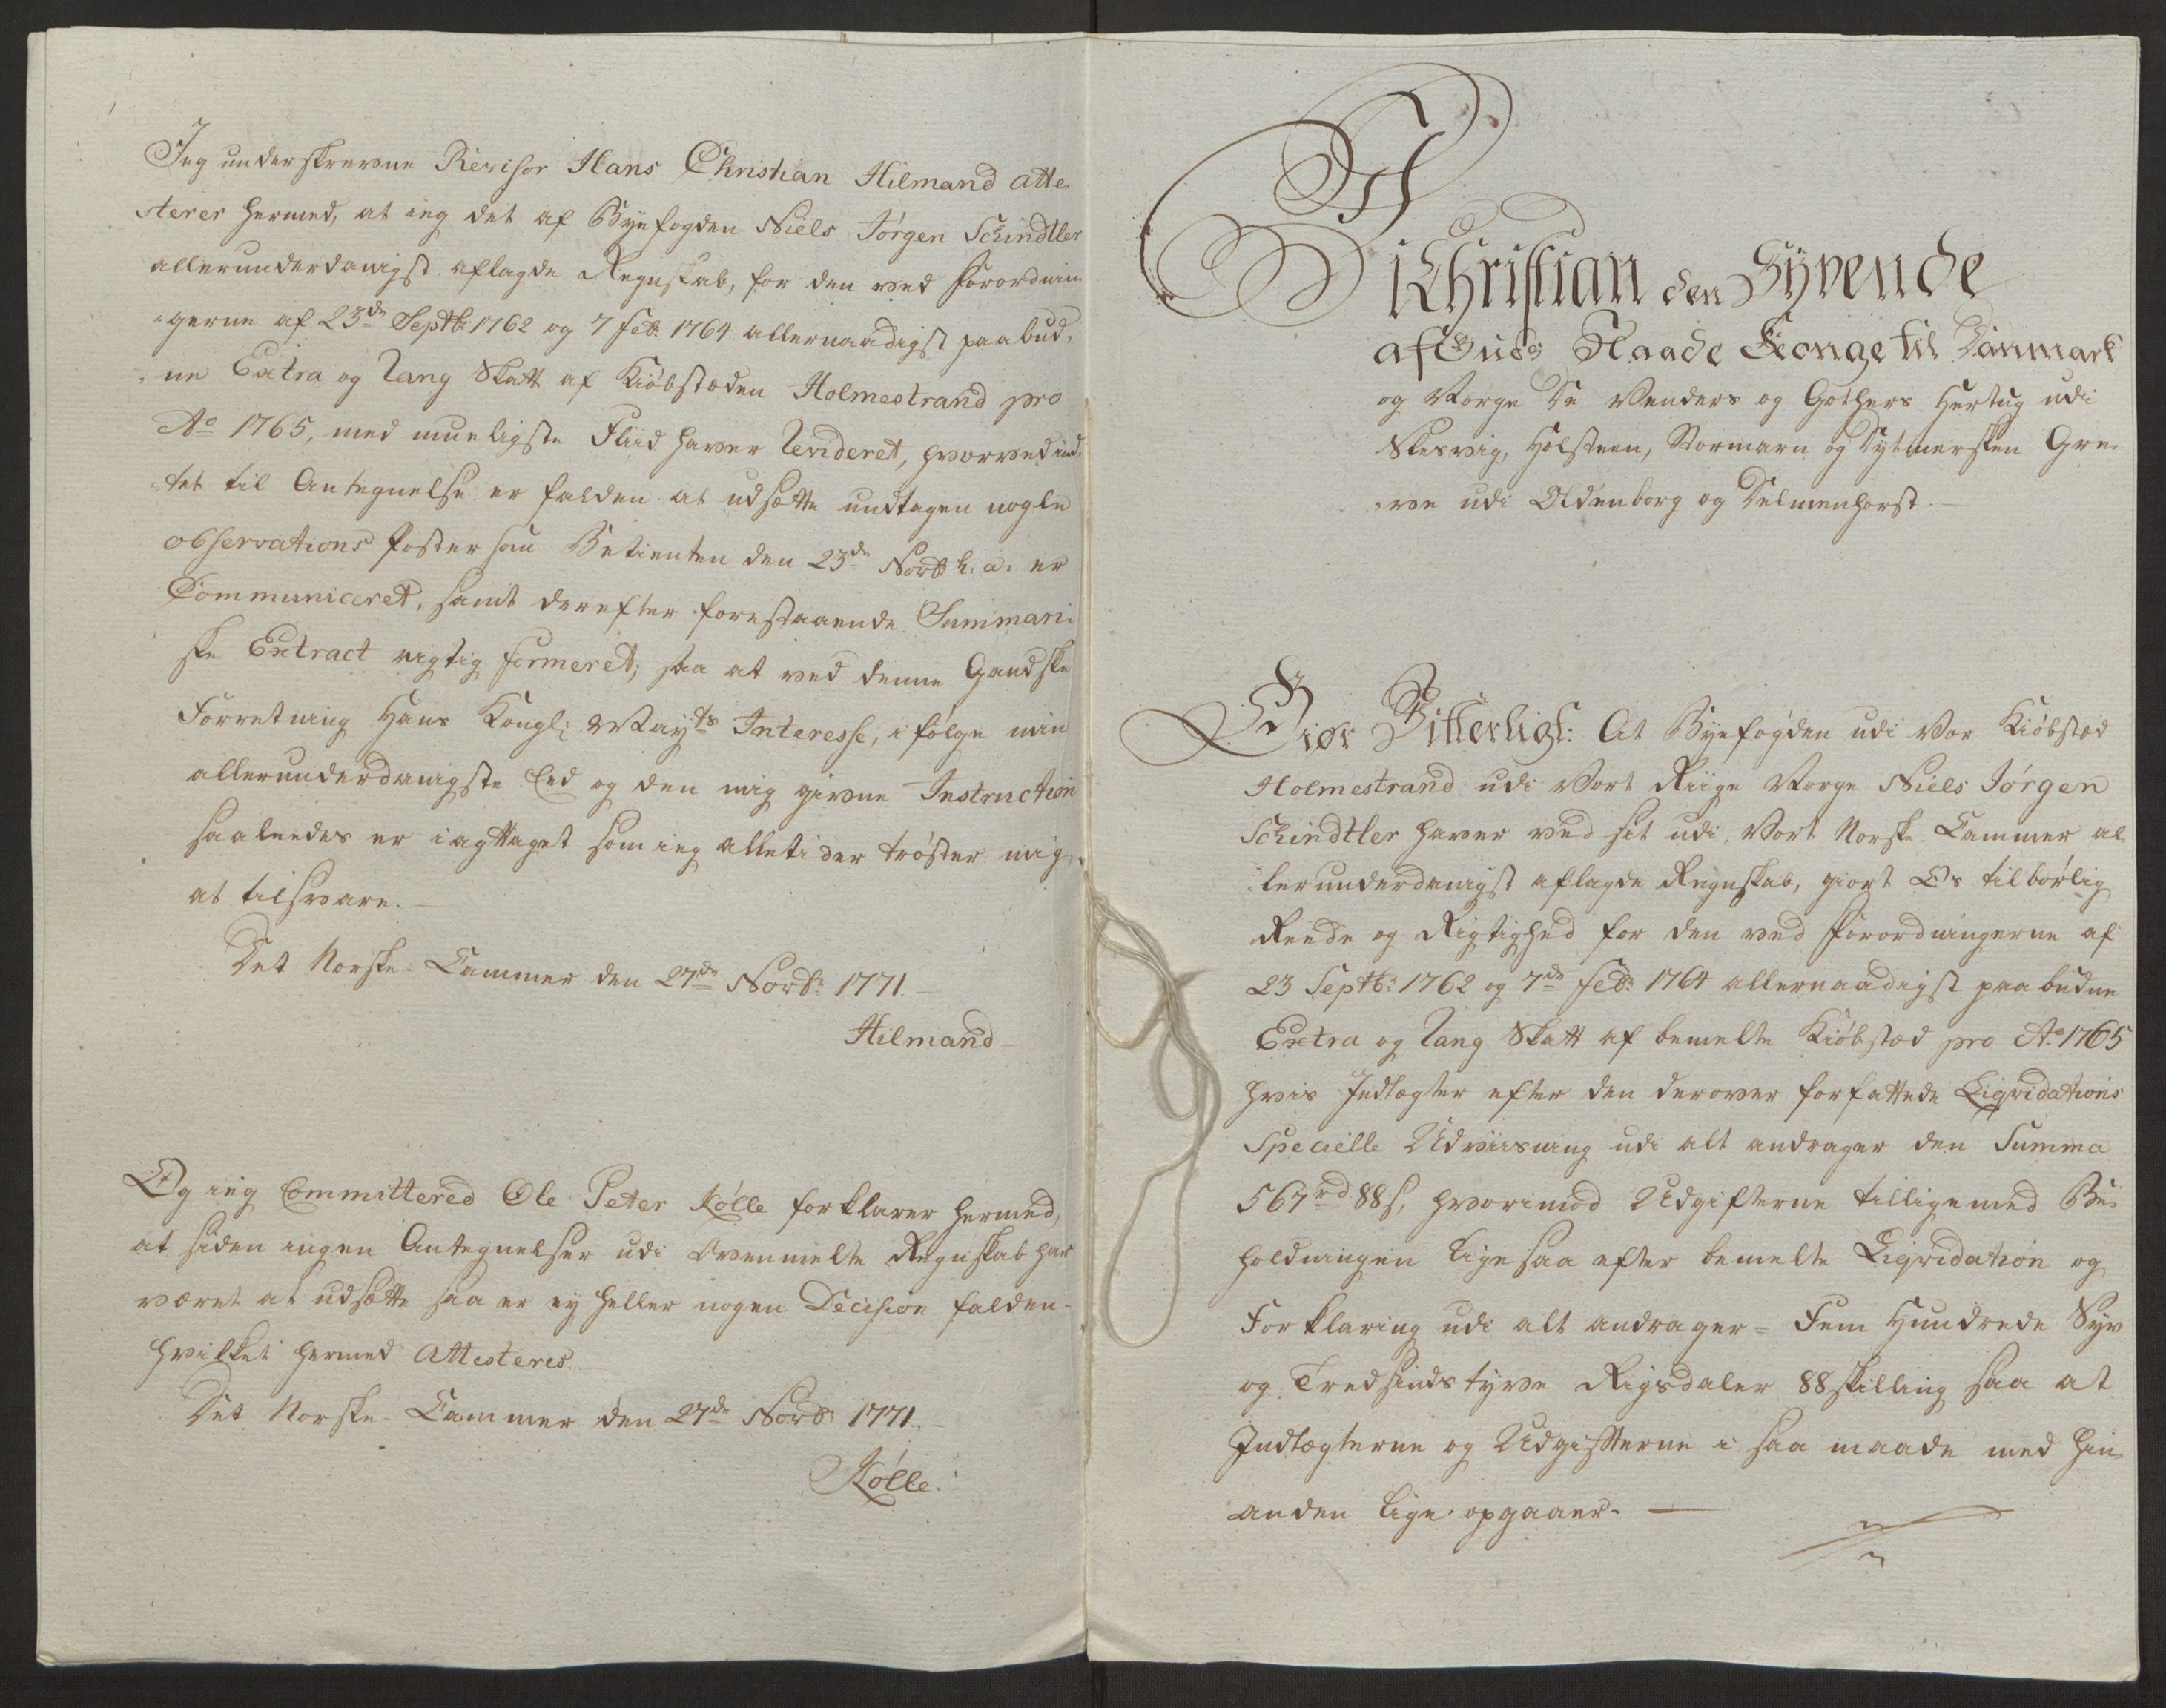 Jeg underskrevne Revisor Hans Christian Hilmand atte-
sterer hermed, at ieg det af Byefogden Niels Jörgen Schindtler
allerunderdanigst aflagde Regnskab, for den ved Forordnin-
gerne af 23de Septbr 1762 og 7 Feb: 1764 allernaadigst paabud-
ne Extra og Lang Skatt af Kiöbstæden Holmestrand pro
Ao 1765, med mueligste Fliid haver Revideret, hvorved int-
tet til Antegnelse er falden at udsætte undtagen nogle
observations Poster som Betienten den 23de Novb: h. a. er
Communiceret, samt derefter forestaaende Summari-
ske Extract rigtig formeret; saa at ved denne Gandske
Forretning Hans Kongl: Mayts Interesse, i fölge min
allerunderdanigste Eed og den mig givne Instruction
saaledes er iagttaget som ieg alletider tröster mig
at tilsvare.
Det Norske Cammer den 27de Novb: 1771
Hilmand
Og ieg Committered Ole Peter Kölle forklarer hermed,
at siden ingen Antegnelser udi Ovenmelte Regnskab har
været at udsætte saa er ey heller nogen Decision falden.
hvilket hermed Attesteres.
Det Norske Cammer den 27de Novb: 1771.
Kölle.
Wi Christian den Syvende
af Guds Naade Konge til Danmark
og Norge De Venders og Gothers Hertug udi
Slesvig, Holsteen, Stormarn og Dytmersken Gre-
ve udi Oldenborg og Delmenhorst.
Giör Vitterligt: At Byefogden udi Vor Kiöbstæd
Holmestrand udi Vort Riige Norge Niels Jörgen
Schindtler haver ved sit udi Vort Norske Cammer al-
lerunderdanigst aflagde Regnskab, giort Os tilbörlig
Reede og Rigtighed for den ved Forordningerne af
23 Septb: 1762 og 7de Feb: 1764 allernaadigst paabudne
Extra og Lang Skatt af bemelte Kiöbstæd pro Ao 1765
hvis Indtægter efter den derover forfattede Liqvidations
Specielle Udviisning udi alt andrager den Summa
567 rd 88 s, hvorimod Udgifterne tilligemed Be-
holdningen ligesaa efter bemelte Liqvidation og
Forklaring udi alt andrager = Fem Hundrede Syv
og Tredsindstyve Rigsdaler 88 skilling saa at
Indtægterne og Udgifterne i saa maade med hin-
anden lige opgaaer.